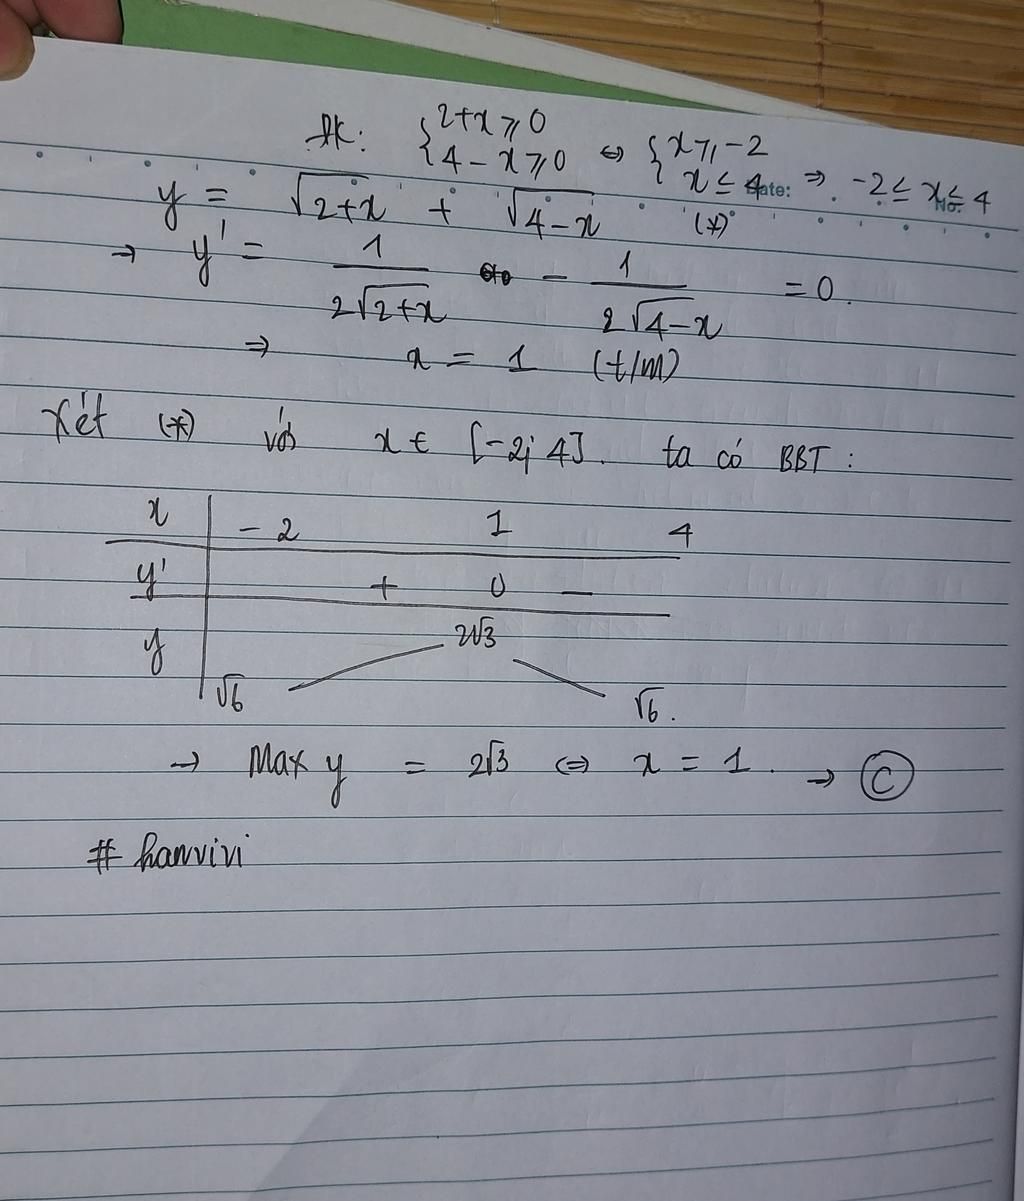 ĐK: { 2+x ⩾ 0 ⇔ { x ⩾ -2
{ 4 - x ⩾ 0 { x ≤ 4 ⇒ -2 ≤ x ≤ 4
Date:
No:
y = √(2+x) + √(4-x) (*)
→ y' = 1/(2√(2+x)) - 1/(2√(4-x)) = 0.
⇒ x = 1 (t/m)
Xét (*) với x ∈ [-2; 4]. ta có BBT :
x -2 1 4
y' + 0 -
y 2√3
√6 √6.
→ Max y = 2√3 ⇔ x = 1. → C
# hanvivi